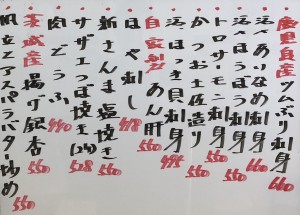 鹿児島産 ツムぶり刺身 660
活〆ありなめ刺身 660
活つぶ刺身
トロサーモン刺身 550
かつお土佐造り 550
活ほっき貝刺身 495
自家製 あん肝 550
はや刺し 418
新さんま塩焼き 550
サザエつぼ焼き(2ケ) 528
肉どうふ 440
茨城産 揚げ銀杏 550
帆立とアスパラバター炒め 550